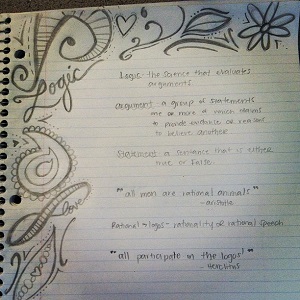 Logic
Logic: the science that evaluates
arguments.
argument: a group of statements
one or more of which claims
to provide evidence or reasons
to believe another
Statement: a sentence that is either
true or false.
"all men are rational animals"
- aristotle
Love
Rational → logos - rationality or rational speech
"all participate in the logos"
- Heraclitus